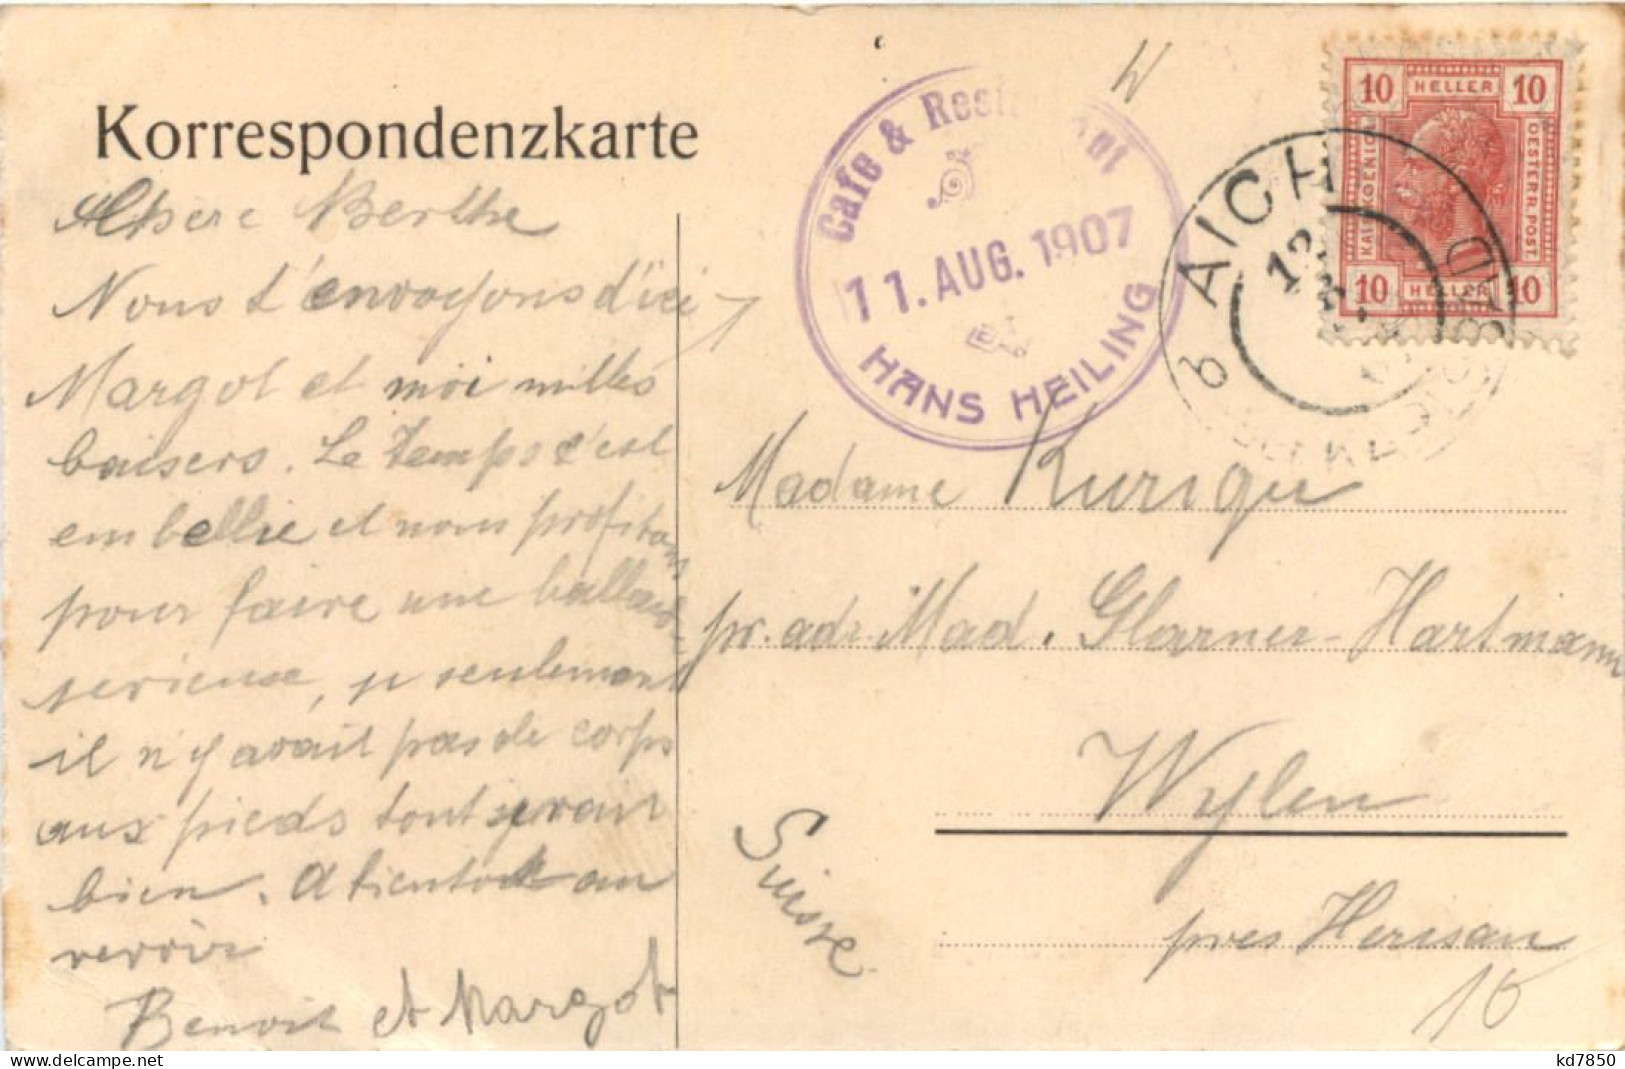 Korrespondenzkarte
Chere Berthe
Nous t'envoyons d'ici
Margot et moi milles
baisers. Le temps s'est
embellie et nous profitons
pour faire une ballade
serieuse, si seulement
il n'y avait pas de corps
aux pieds tout serait
bien. A bientot au
revoir
Benoit et Margot
Cafe & Rest
11. AUG. 1907
HANS HEILING
AICH
b
12
10 HELLER 10
KAIS. KOENIGL.
OESTERR. POST
10 HELLER 10
Madame Kurigu
pr. adr. Mad. Glarner-Hartmann
Wylen
près Herisau
Suisse
10
kd7850